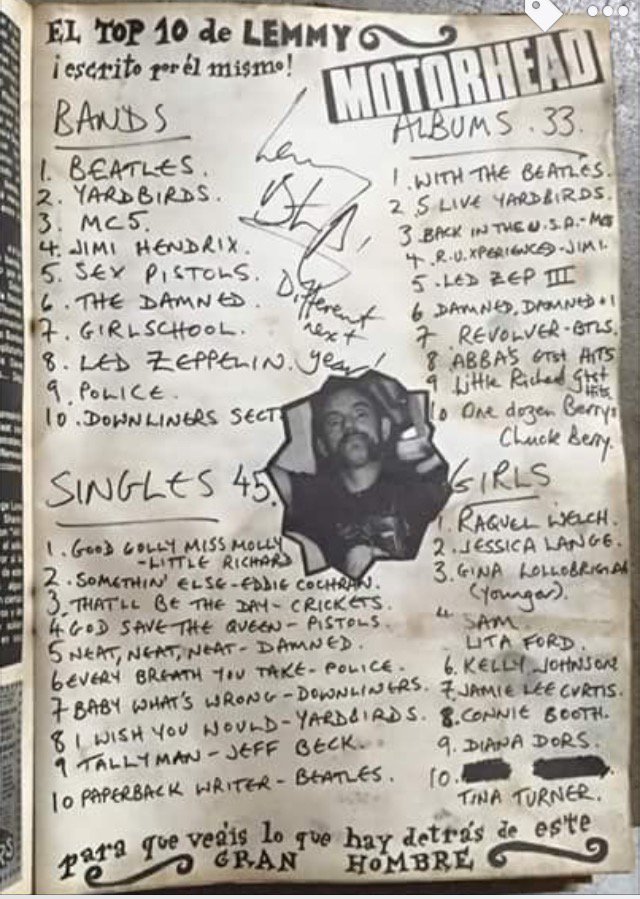 EL TOP 10 de LEMMY
¡escrito por él mismo!
MOTORHEAD
BANDS
1. BEATLES.
2. YARDBIRDS.
3. MC5.
4. JIMI HENDRIX.
5. SEX PISTOLS.
6. THE DAMNED.
7. GIRLSCHOOL.
8. LED ZEPPELIN.
9. POLICE.
10. DOWNLINERS SECT
Different
next
year!
ALBUMS. 33.
1. WITH THE BEATLES.
2. 5 LIVE YARDBIRDS.
3 BACK IN THE U.S.A-MC5
4. R.U. XPERIENCED-JIMI.
5. LED ZEP III
6 DAMNED, DAMNED+1
7. REVOLVER-BTLS.
8 ABBA'S GTST HITS
9 Little Richard Gtst
Hits
10 One dozen Berrys
Chuck Berry.
SINGLES 45.
1. GOOD GOLLY MISS MOLLY
-LITTLE RICHARD
2. SOMETHIN' ELSE-EDDIE COCHRAN.
3. THAT'LL BE THE DAY-CRICKETS.
4. GOD SAVE THE QUEEN-PISTOLS.
5 NEAT, NEAT, NEAT-DAMNED.
6 EVERY BREATH YOU TAKE-POLICE.
7 BABY WHAT'S WRONG-DOWNLINERS.
8 I WISH YOU WOULD-YARDBIRDS.
9 TALLYMAN-JEFF BECK.
10 PAPERBACK WRITER-BEATLES.
GIRLS
1. RAQUEL WELCH.
2. JESSICA LANGE.
3. GINA LOLLOBRIGIDA
(younger).
4 SAM.
LITA FORD.
6. KELLY JOHNSON
7. JAMIE LEE CURTIS.
8. CONNIE BOOTH.
9. DIANA DORS.
10.
TINA TURNER.
para que veáis lo que hay detrás de este
GRAN HOMBRE